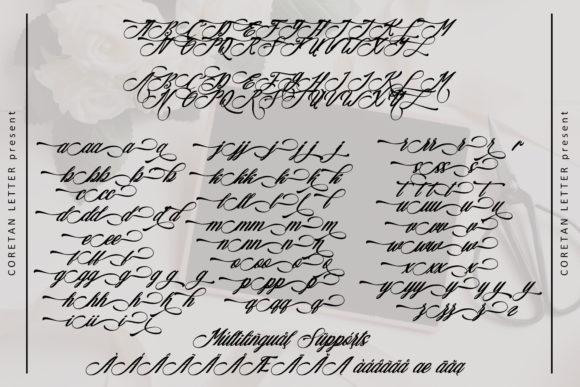 CORETAN LETTER present
A B C D E F G H I J K L M
N O P Q R S T U V W X Y Z
A B C D E F G H I J K L M
N O P Q R S T U V W X Y Z
a aa a a
b bb b b
c cc
d dd d d d
e ee
f ff f
g gg g g g g
h hh h h h
i ii i
j jj j j j
k kk k k k
l ll l l
m mm m m
n nn n n
o oo o
p pp p
q qq q
r rr r r r
s ss s
t t t t t
u uu u u
v vv v
w ww w
x xx x
y yy y y y y
z zz z z
Multilingual Supports
À Á Â Ã Ä Å Æ Ā Ă Ą àáâãäå æ āăą
CORETAN LETTER present